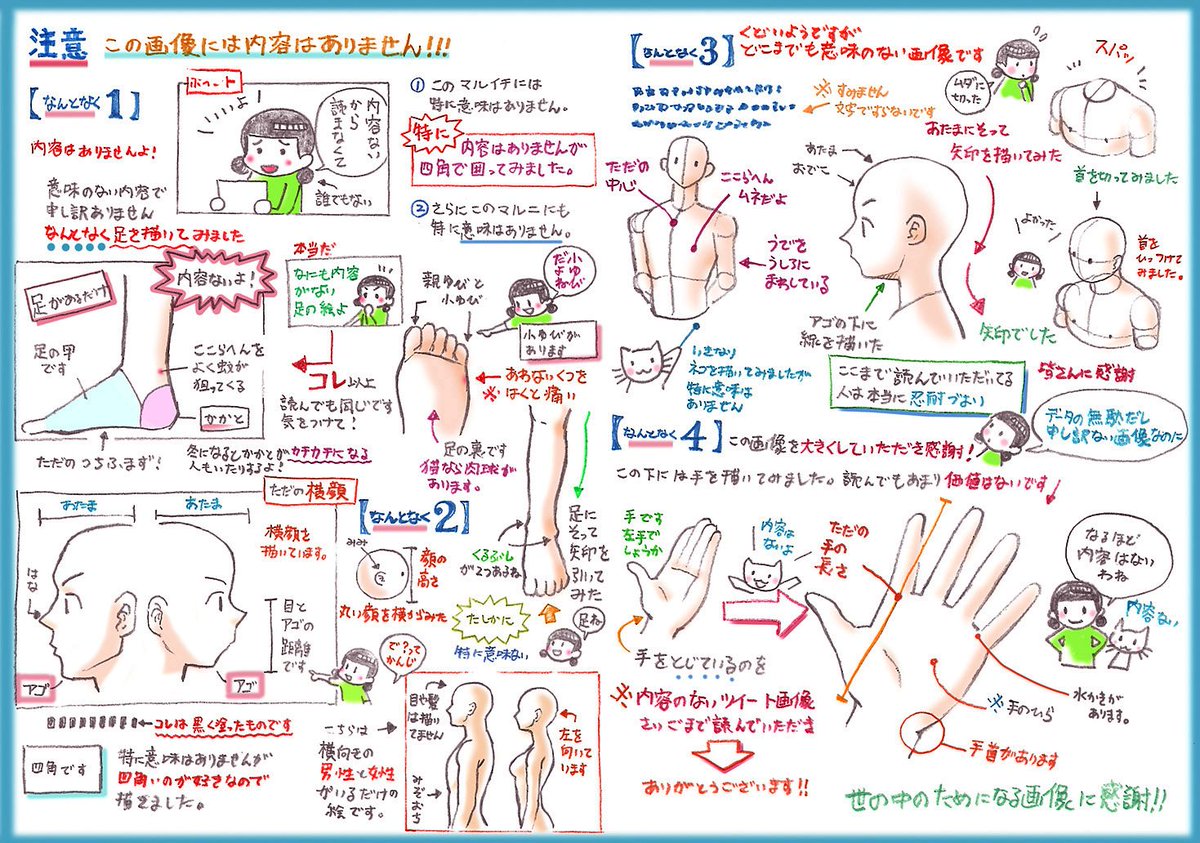 注意 この画像には内容はありません!!!
【なんとなく1】
内容はありませんよ!
意味のない内容で
申し訳ありません
なんとなく足を描いてみました
いいよ!
内容ない
から
読まなくて
誰でもない
① このマルイチには
特に意味はありません。
特に
内容はありませんが
四角で囲ってみました。
② さらにこのマルニにも
特に意味はありません。
足があるだけ
内容ないよ!
足の甲
です
ここらへんを
よく蚊が
狙ってくる
かかと
ただのつちふまず!
冬になるとかかとがカチカチになる
人もいたりするよ!
本当だ
なにも内容
がない
足の絵よ
コレ以上
読んでも同じです
気をつけて!
親ゆびと
小ゆび
だよね
小ゆび
小ゆびが
あります
あわないくつを
※はくと痛い
足の裏です
猫なら肉球が
あります。
ただの横顔
あたま
あたま
はな
横顔を
描いています。
目と
アゴの
距離
です
アゴ
アゴ
コレは黒く塗ったものです
四角です
特に意味はありませんが
四角いのが好きなので
描きました。
【なんとなく2】
みみ
顔の
高さ
丸い顔を横からみた
くるぶし
が2つあるね
足に
そって
矢印を
引いてみた
たしかに
特に意味ない
足ね
で?って
かんじ
こちらは
横向きの
男性と女性
がいるだけの
絵です。
目や髪
は描い
てません
みぞおち
左を
向いて
います
【なんとなく3】
くどいようですが
どこまでも意味のない画像です
※すみません
文字ですらないです
ムダに
切った
スパッ
ただの
中心
ここらへん
ムネだよ
うでを
うしろに
まわしている
いきなり
ネコを描いてみましたが
特に意味は
ありません
あたま
おでこ
あたまにそって
矢印を描いてみた
アゴの下に
線を描いた
矢印でした
首を切ってみました
よかった
首を
ひっつけて
みました。
ここまで読んでいただいてる
人は本当に忍耐づよい
皆さんに感謝
【なんとなく4】
この画像を大きくしていただき感謝!
データの無駄だし
申し訳ない画像なのに
この下には手を描いてみました。読んでもあまり価値はないです
手です
左手で
しょうか
内容は
ないよ
ただの
手の
長さ
手をとじているのを
※内容のないツイート画像
さいごまで読んでいただき
ありがとうございます!!
なるほど
内容はない
わね
内容ない
水かきが
あります。
※手のひら
手首があります
世の中のためになる画像に感謝!!